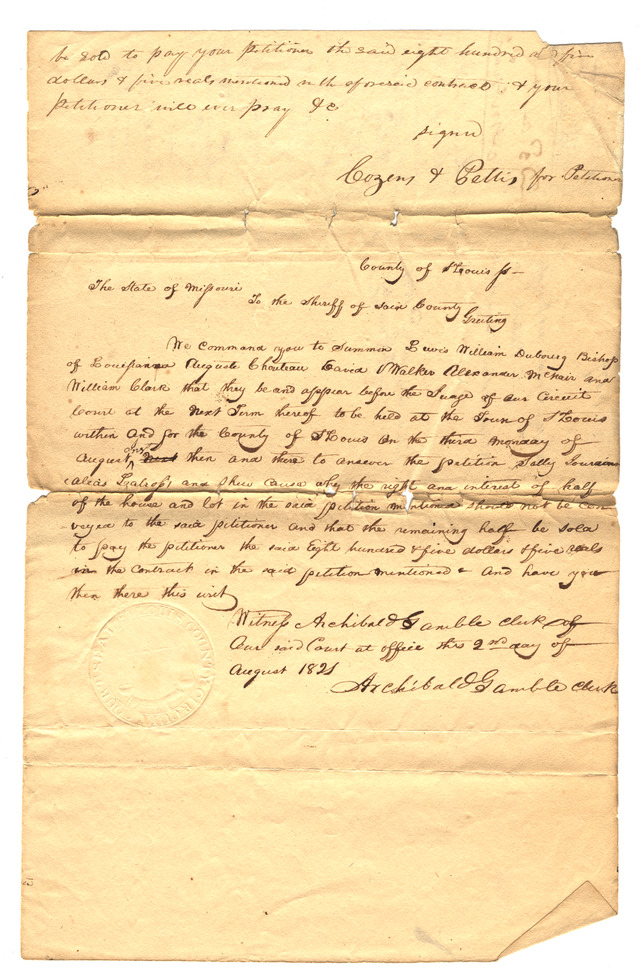 be sold to pay your petitioner the said eight hundred and five
dollars & five reals mentioned in the aforesaid contract & your
Petitioner will ever pray &c
signed
Cozens & Pettis for Petitioner
County of St Louis ss
The State of Missouri
To the Sheriff of said County
Greeting
We command you to Summon Lewis William Dubourg Bishop
of Louisianna Auguste Chouteau David V Walker Alexander McNair and
William Clark that they be and appear before the Judge of our Circuit
Court at the Next Term thereof to be held at the Town of St Louis
within and for the County of St Louis on the third Monday of
August inst then and there to answer the petition Sally
(alias and shew cause why the right and interest of half
of the house and lot in the said petition mentioned should not be con
veyed to the said petitioner and that the remaining half be sold
to pay the petitioner the said Eight hundred & five dollars & five reals
in the contract in the said petition mentioned & And have you
then there this writ
Witness Archibald Gamble Clerk of
Our said Court at office the 2nd day of
August 1821
Archibald Gamble Clerk